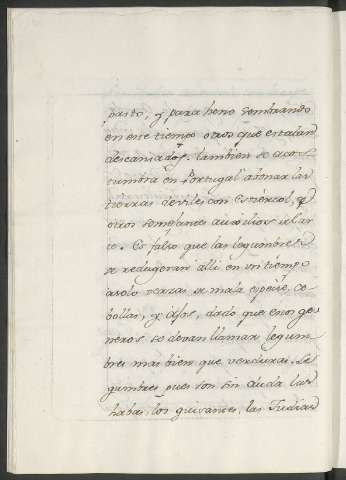 pasto, y para heno sembrando
en ese tiempo otros que estaban
descansados. tambien se acos-
tumbra en Portugal abonar las
tierras deviles con estiércol, y
otros semejantes auxilios del ar
te. Es falso que las legumbres
se redugeran alli en un tiempo
a solo verzas de mala especie, ce
bollas, y ajos, dado que esos ge
neros se devan llamar legum
bres mas bien que verduras. Le
gumbres pues son sin duda las
habas, los guisantes, las Judias